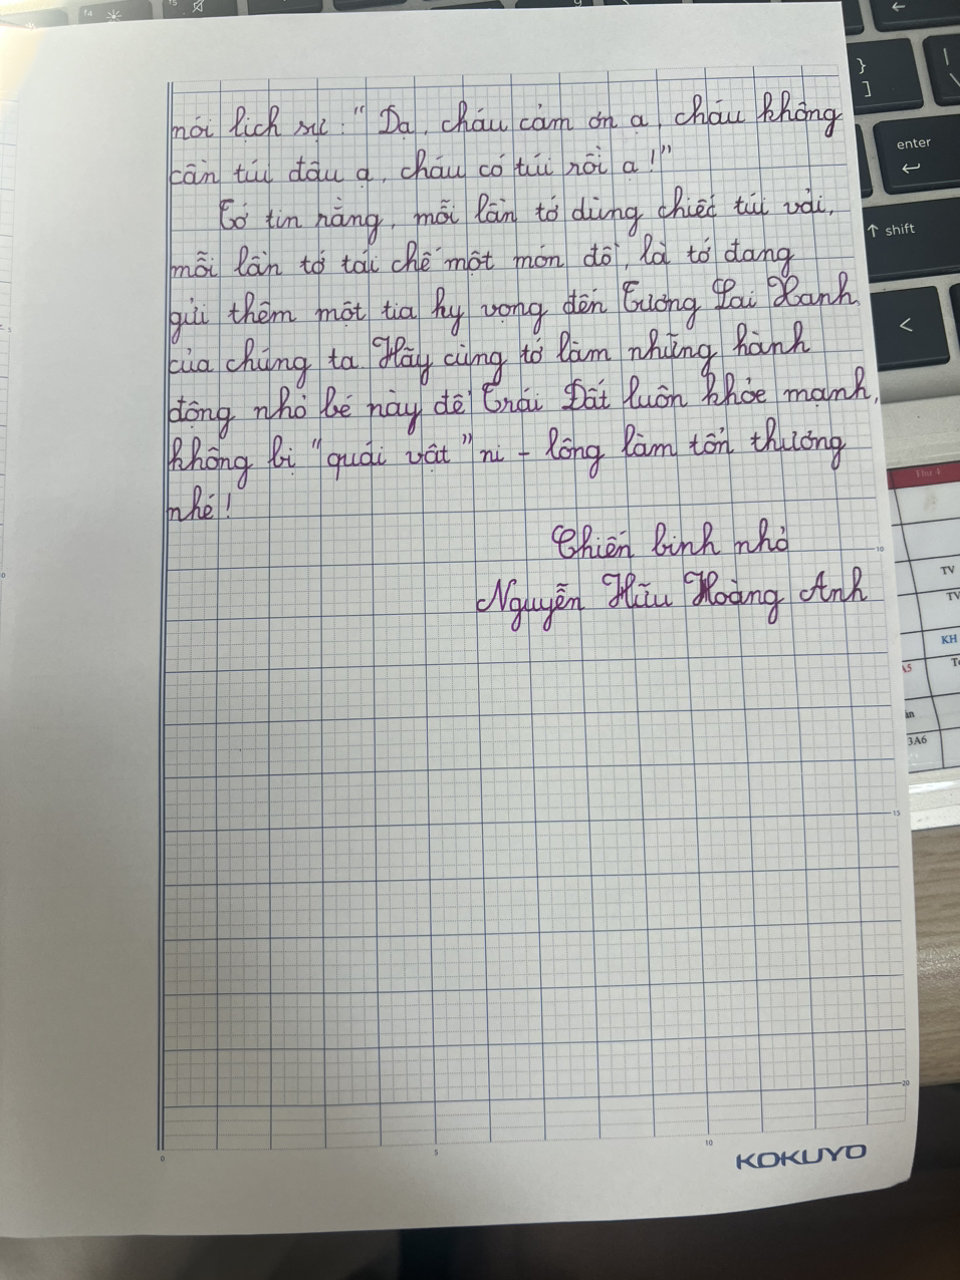 nói lịch sự: "Dạ, cháu cảm ơn ạ, cháu không
cần túi đâu ạ, cháu có túi rồi ạ!"
Tớ tin rằng, mỗi lần tớ dùng chiếc túi vải,
mỗi lần tớ tái chế một món đồ, là tớ đang
gửi thêm một tia hy vọng đến Tương Lai Xanh
của chúng ta. Hãy cùng tớ làm những hành
động nhỏ bé này để Trái Đất luôn khỏe mạnh,
không bị "quái vật" ni - lông làm tổn thương
nhé!
Chiến binh nhỏ
Nguyễn Hữu Hoàng Anh
KOKUYO
0
5
10
10
15
20
enter
shift
}
]
<
F4
Thứ 4
TV
TV
KH
A5
3A6